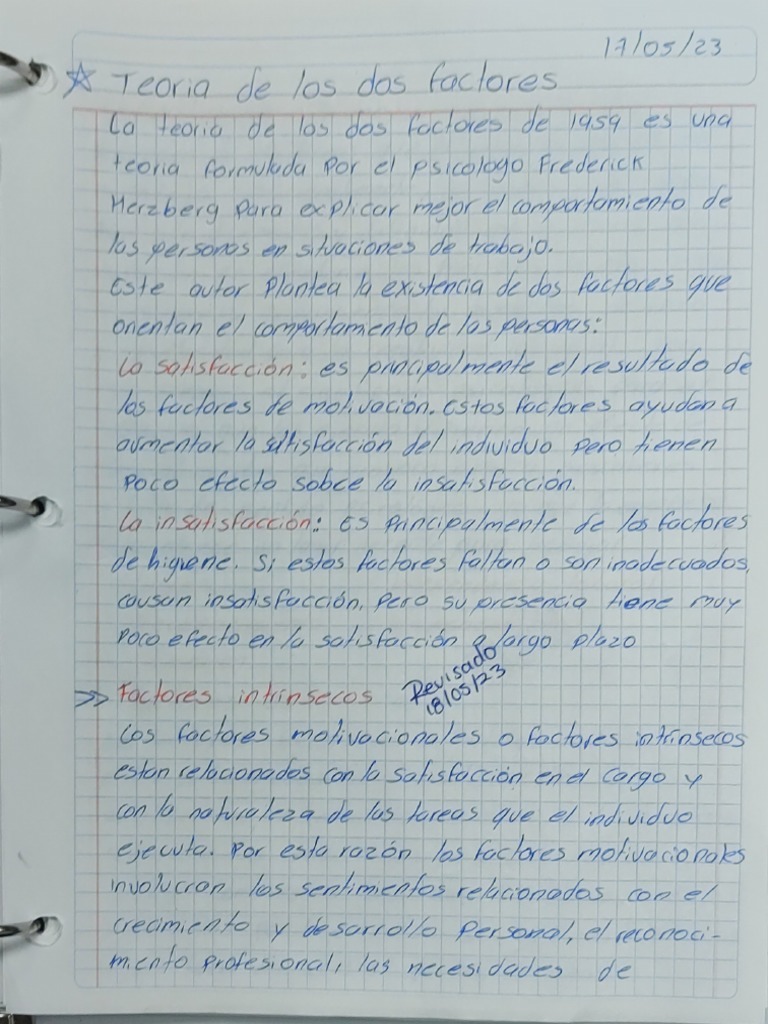 17/05/23
☆ Teoria de los dos factores
La teoria de los dos factores de 1959 es una
teoria formulada por el psicologo Frederick
Herzberg para explicar mejor el comportamiento de
las personas en situaciones de trabajo.
Este autor plantea la existencia de dos factores que
orientan el comportamento de las personas:
La satisfacción: es principalmente el resultado de
los factores de motivación. Estos factores ayudan a
aumentar la satisfacción del individuo pero tienen
poco efecto sobce la insatisfacción.
La insatisfacción: Es principalmente de los factores
de higiene. Si estos factores faltan o son inadecuados,
causan insatisfacción, pero su presencia tiene muy
poco efecto en la satisfacción a largo plazo
Revisado
18/05/23
>> Factores intrinsecos
Los factores motivacionales o factores intrinsecos
estan relacionados con la satisfacción en el cargo y
con la naturaleza de las tareas que el individuo
ejecuta. Por esta razón los factores motivacionales
involucran los sentimientos relacionados con el
crecimiento y desarrollo personal, el reconoci-
miento profesional, las necesidades de